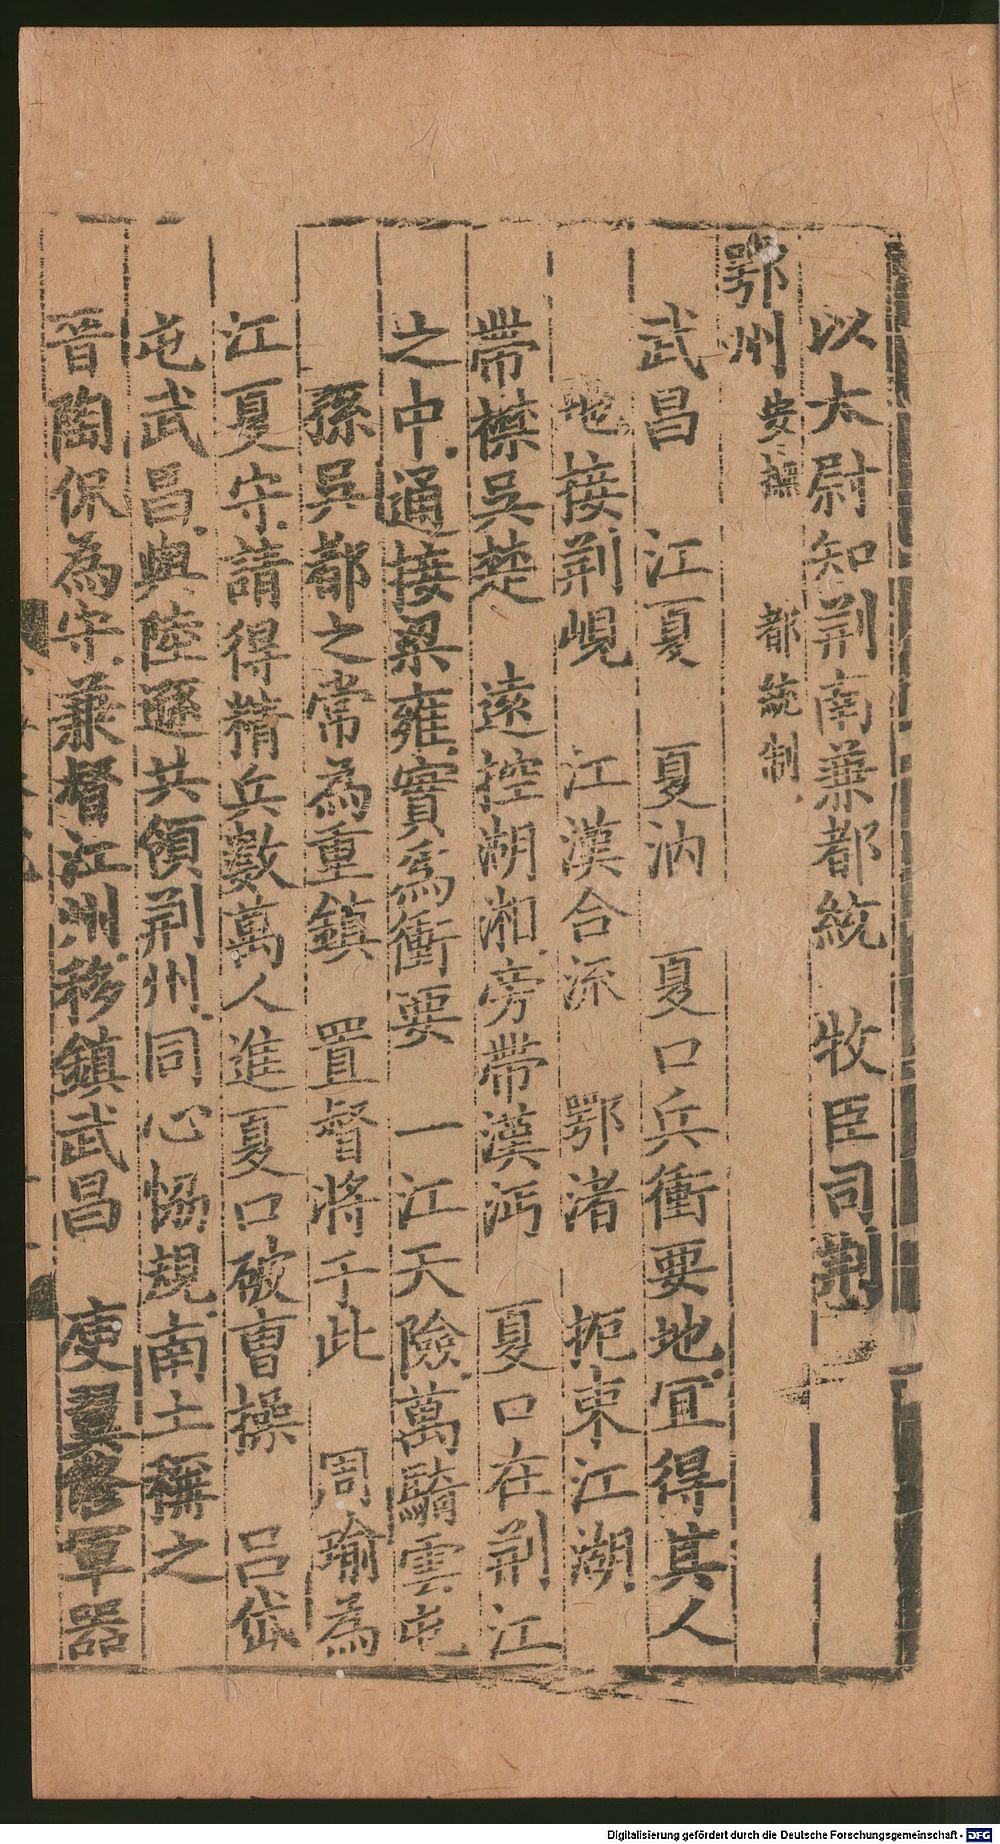 以太尉知荆南兼都統　牧臣司荆
鄂州安撫　都統制
武昌　江夏　夏汭　夏口兵衝要地宜得其人
地接荆峴　江漢合流　鄂渚　扼束江湖
帶襟吳楚　遠控湖湘旁帶漢沔　夏口在荆江
之中通接梁雍實爲衝要　一江天險萬騎雲屯
孫吳都之常為重鎮　置督將于此　周瑜為
江夏守請得精兵數萬人進夏口破曹操　吕岱
屯武昌與陸遜共領荆州同心恊規南土稱之
晋陶侃為守兼督江州移鎮武昌　庾翼繕軍器
Digitalisierung gefördert durch die Deutsche Forschungsgemeinschaft - DFG